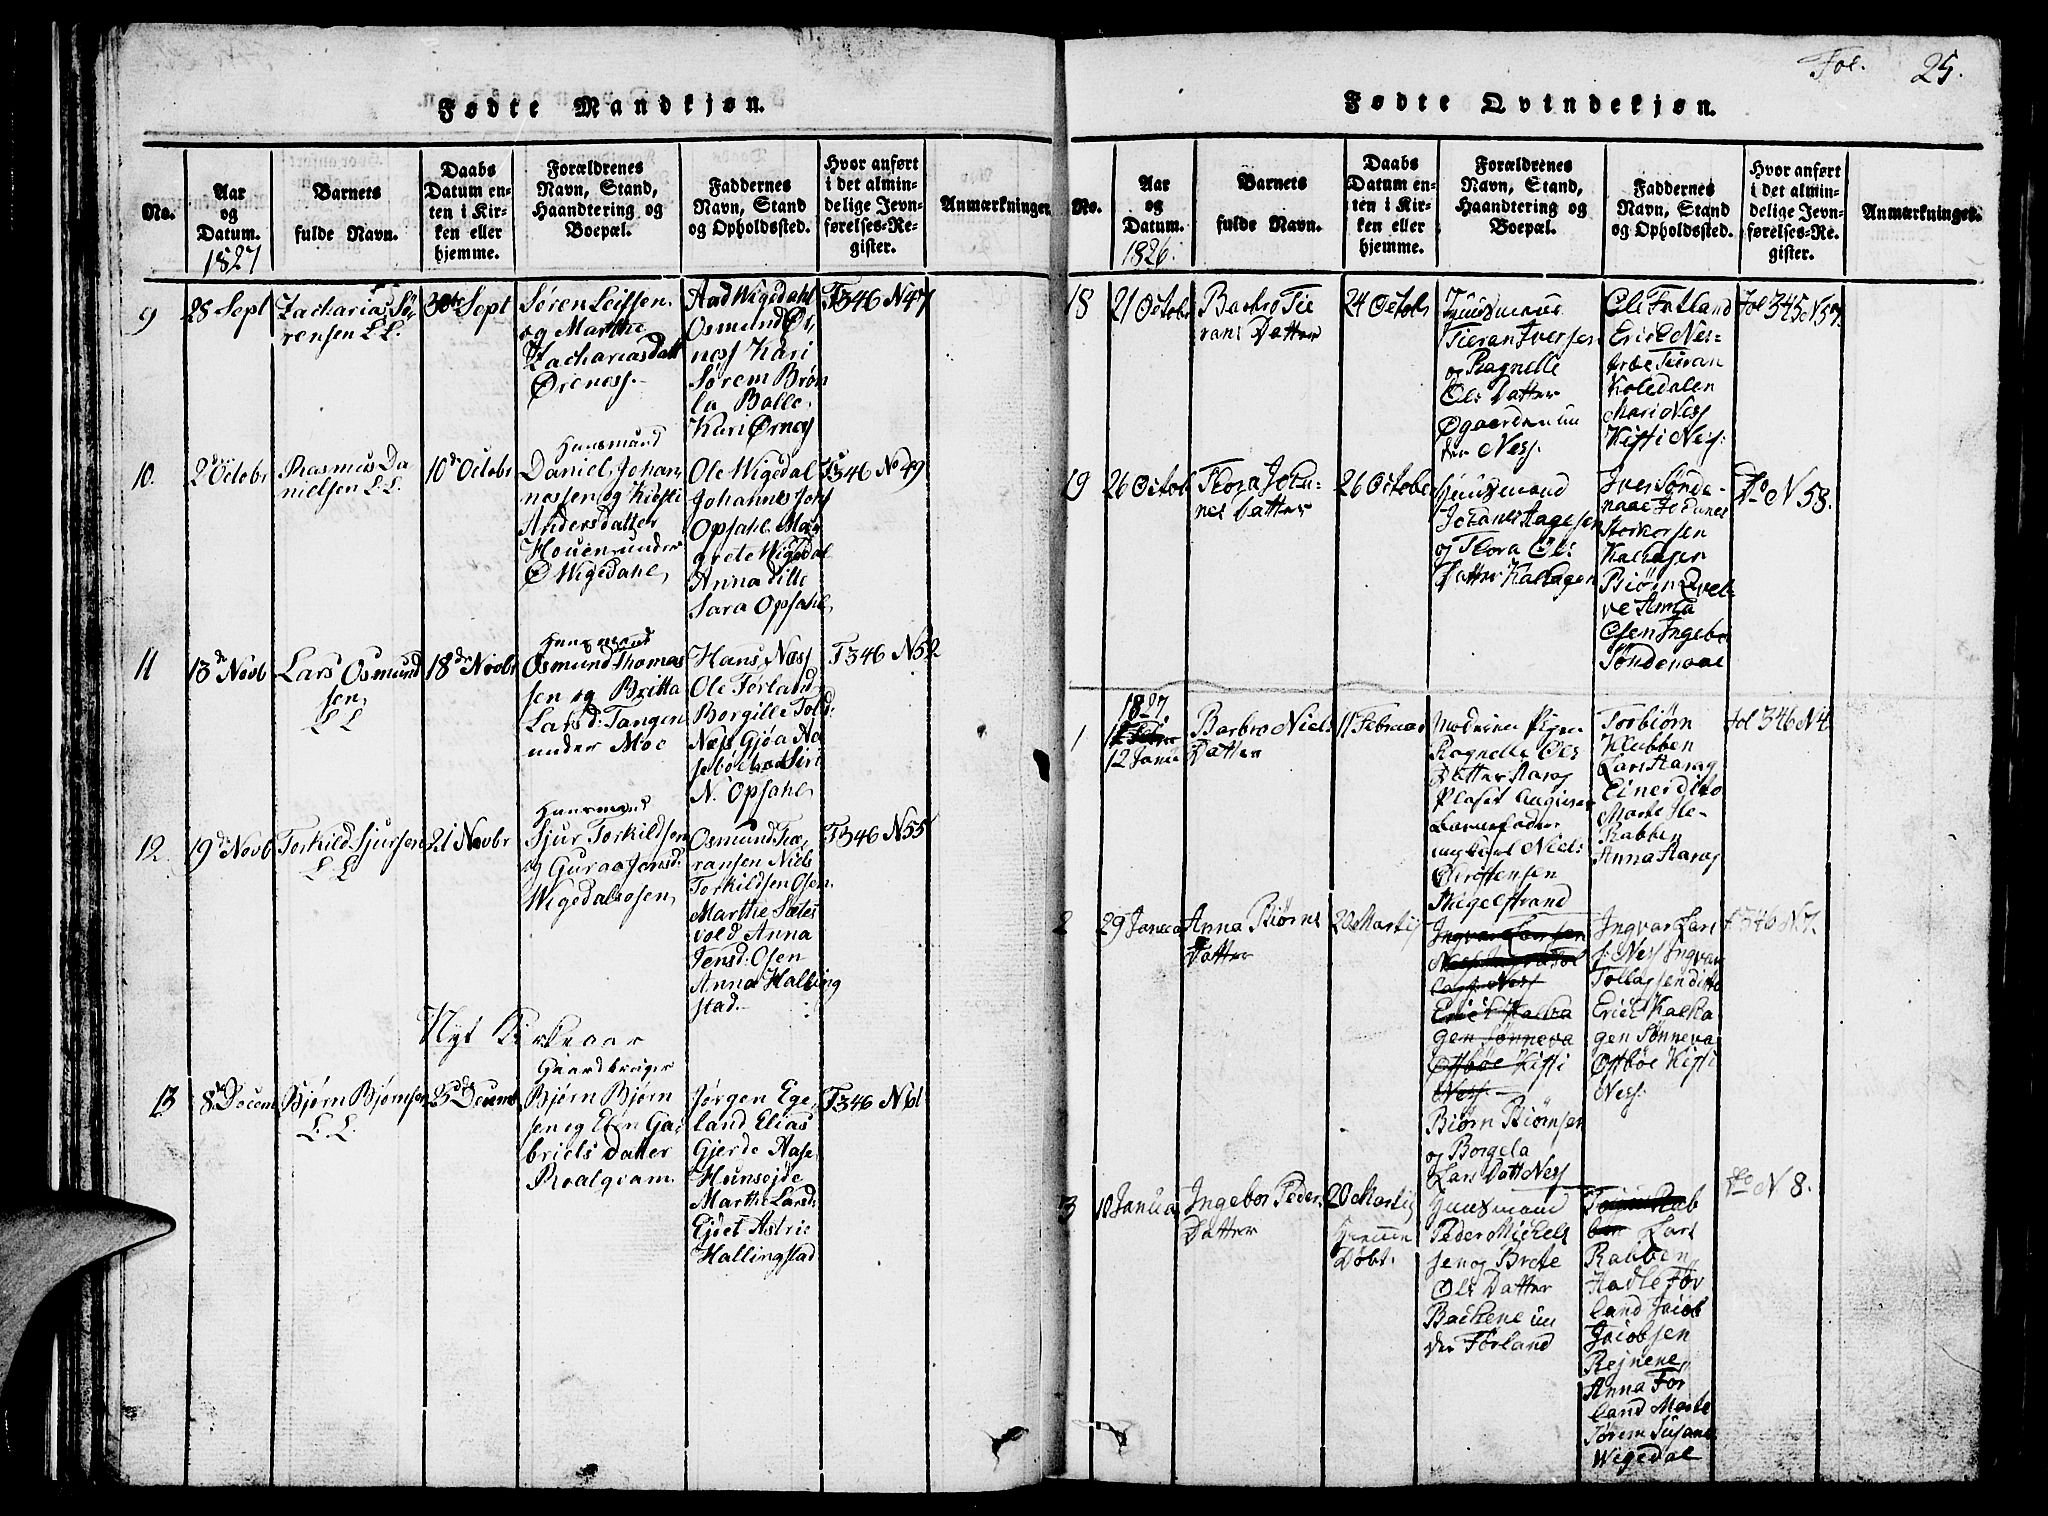 Fødte Mandkjøn.
No.
Aar
og
Datum.
1827
Barnets
fulde Navn.
Daabs
Datum en-
ten i Kir-
ken eller
hjemme.
Forældrenes
Navn, Stand,
Haandtering og
Boepæl.
Faddernes
Navn, Stand
og Opholdssted.
Hvor anført
i det almin-
delige Jevn-
førelses-Re-
gister.
Anmærkninger.
9
28 Sept
Zacharias Sø-
rensen L.L.
30te Sept
Søren Leifsen
og Marthe
Zachariasdatt
Øreness.
Aad Wigedahl
Osmund Ør
ness Kari
Sørem Brøn
la Balle
Kari Ørness
F346 N47
10.
2d Octobr
Rasmus Da
nielsen L.L.
10de Octobr
Huusmand
Daniel Johan
nessen og Kirsti
Andersdatter
Houen under
Ø Wigedahl
Ole Wigedal
Johannes Jors
Opsahl Mar
grete Wigedal
Anna ditto
Sara Opsahl
F346 No 49
11
13de Novb
Lars Osmund
sen
L L
18de Novbr
Huusmand
Osmund Thomas
sen og Britta
Larsd: Tangen
under Moe
Hans Næss
Ole Førland
Borgille Told:
Næss Gjøa Aa
sebøe Siri
N. Opsahl
F346 N52
12.
19de Novb
Torkild Sjursen
L L
21 Novbr
Huusmand
Sjur Torkildsen
og Guraa Jensd:
Wigedalsosen
Osmund Taa
ransen Niels
Torkildsen Osen
Marthe Sætes
vold Anna
Jensd: Osen
Anna Halling
stad.
F346 N55
Nyt Kirkeaar
13
8de Decem
Bjørn Bjørnsen
L. L.
23de Decemb
Gaardbruger
Bjørn Bjørn
sen og Elen Ga-
briels datter
Roalqvam
Jørgen Ege
land Elias
Gjerde Aase
Hunsejde
Marthe Larsd:
Ejdet Astrie
Hallingstad
F346 N61
Fol. 25.
Fødte Qvindekjøn.
No.
Aar
og
Datum.
1826.
Barnets
fulde Navn.
Daabs
Datum en-
ten i Kir-
ken eller
hjemme.
Forældrenes
Navn, Stand,
Haandtering og
Boepæl.
Faddernes
Navn, Stand
og Opholdssted.
Hvor anført
i det almin-
delige Jevn-
førelses-Re-
gister.
Anmærkninger.
18
21 Octobr
Barbro Tie
rans Datter
24 Octobr
Huusmand
Tieran Iversen
og Ragnelle
Ols Datter
Øgaarden un
der Ness.
Ole Fatland
Erick Nes-
Tieran
Koledalen
Mari Ness
Kisti Ness.
Fol 345 N57.
19
26 Octob
Flora Joha-
nes Datter
26 Octobr
Huusmand
Johanes Aagesen
og Flora Ols
Datter Kalhagen
Iver Sønde-
naae Johanes
Storkorsen
Kalhagen
Biørn Qvel-
ve Anna
Osen Ingebor
Søndenaae
Do N 58.
1
1827
12 Janua
Barbro Niels
Datter
11 Februar
Moderen Pigen
Ragnelle Ols
Datter Aarag
Plaset Augiver
Barnefader
ungkarl Niels
Christensen
Migelstrand
Torbiørn
Klubben
Lars Aarag
Einer dito
Marte Kle-
Rabben
Anna Aarag
Fol 346 N4
2
29 Janua
Anna Biørns
Datter
20 Martij
Ingvar Larsen
Ness Ingvar Tol
lags. Ness
Erick Kalha
gen Sønneva
Østbøe Kisti
Ness.
Biørn Biørnsen
og Borgela
Lars Datt Ness
Ingvar Lars
s. Ness Ingvar
Tollagsen ditto
Erick Kalha
gen Sønneva
Østbøe Kisti
Ness.
F 346 N 7.
3
10 Janua
Ingebor Peders
Datter
20 Martij
Hjemme
Døbt.
Huusmand
Peder Michels
sen og Brete
Ols Datter
Backene un
der Førland
Lars
Rabben
Aadle Før
land Jacob
Jacobsen
Rejnene
Anna Før
land Marte
Sørem Susane
Wigedal
Do N 8.